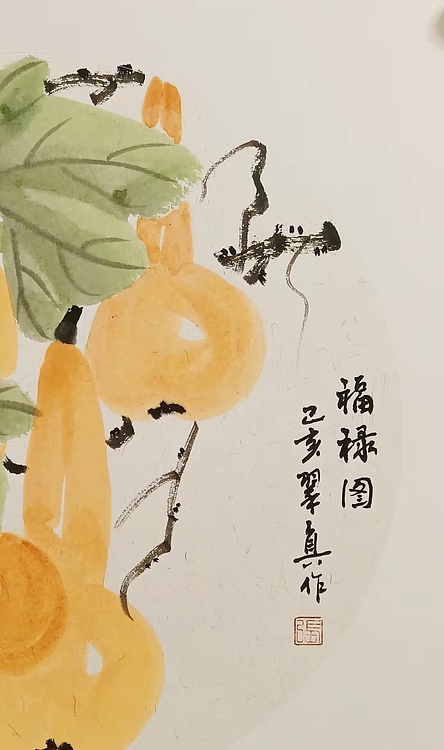 福禄图
己亥翠真作
張